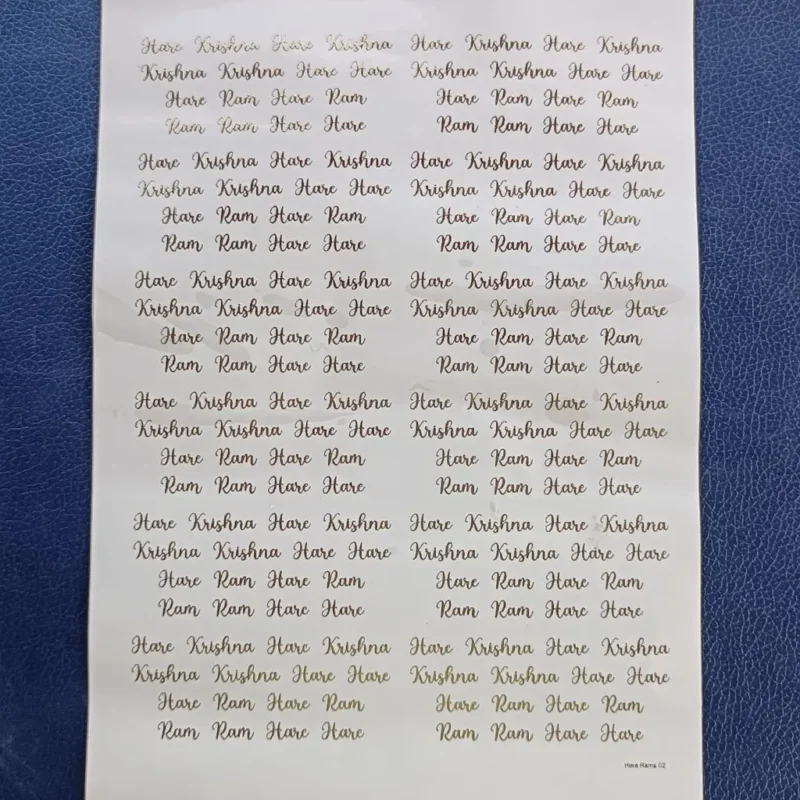 Hare Krishna Hare Krishna Hare Krishna Hare Krishna
Krishna Krishna Hare Hare Krishna Krishna Hare Hare
Hare Ram Hare Ram Hare Ram Hare Ram
Ram Ram Hare Hare Ram Ram Hare Hare
Hare Krishna Hare Krishna Hare Krishna Hare Krishna
Krishna Krishna Hare Hare Krishna Krishna Hare Hare
Hare Ram Hare Ram Hare Ram Hare Ram
Ram Ram Hare Hare Ram Ram Hare Hare
Hare Krishna Hare Krishna Hare Krishna Hare Krishna
Krishna Krishna Hare Hare Krishna Krishna Hare Hare
Hare Ram Hare Ram Hare Ram Hare Ram
Ram Ram Hare Hare Ram Ram Hare Hare
Hare Krishna Hare Krishna Hare Krishna Hare Krishna
Krishna Krishna Hare Hare Krishna Krishna Hare Hare
Hare Ram Hare Ram Hare Ram Hare Ram
Ram Ram Hare Hare Ram Ram Hare Hare
Hare Krishna Hare Krishna Hare Krishna Hare Krishna
Krishna Krishna Hare Hare Krishna Krishna Hare Hare
Hare Ram Hare Ram Hare Ram Hare Ram
Ram Ram Hare Hare Ram Ram Hare Hare
Hare Krishna Hare Krishna Hare Krishna Hare Krishna
Krishna Krishna Hare Hare Krishna Krishna Hare Hare
Hare Ram Hare Ram Hare Ram Hare Ram
Ram Ram Hare Hare Ram Ram Hare Hare
Hare Rama 02